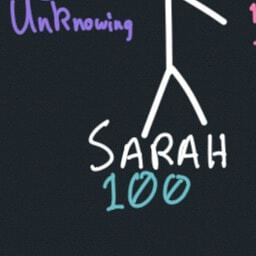 Unknowing
SARAH
100